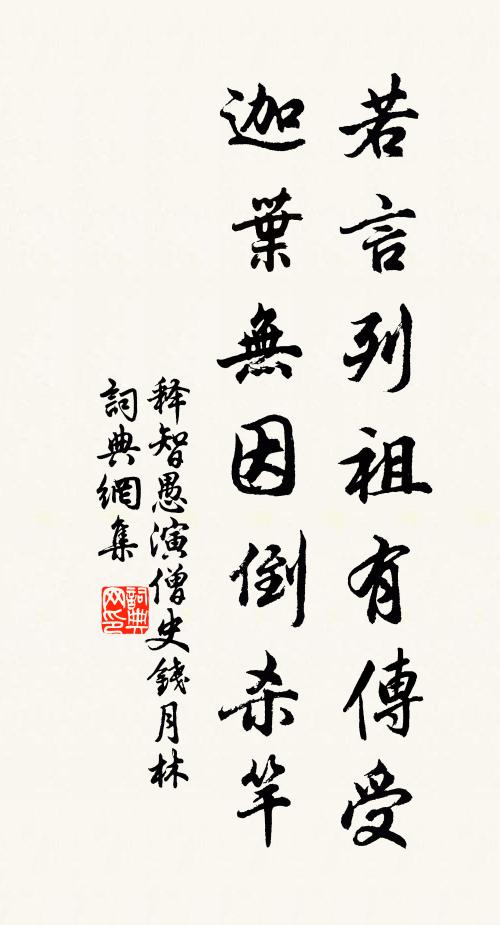 若言列祖有傳受
迦葉無因倒杀竿
释智愚演僧史錢月林
詞典網集
詞典网印